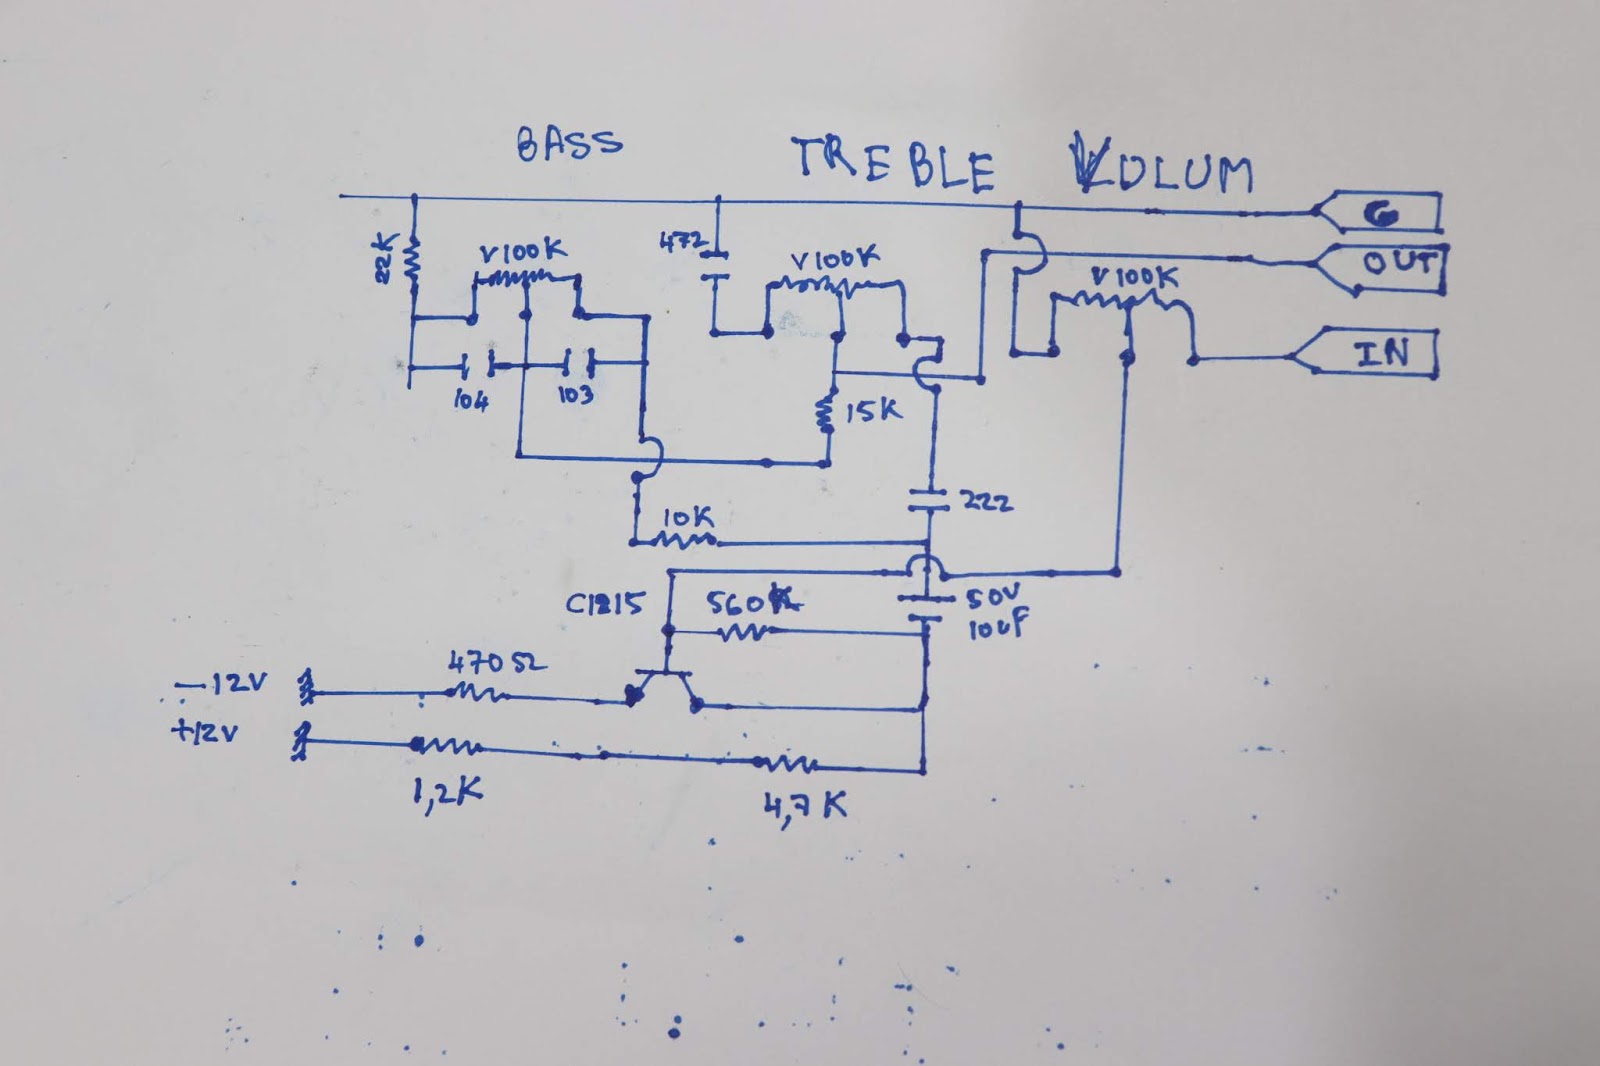 BASS TREBLE VOLUM
G
22K V100K 472 V100K OUT
V100K
IN
104 103 15K
222
10K
C1815 560K 50V
10uF
470Ω
-12V
+12V
1,2K 4,7K